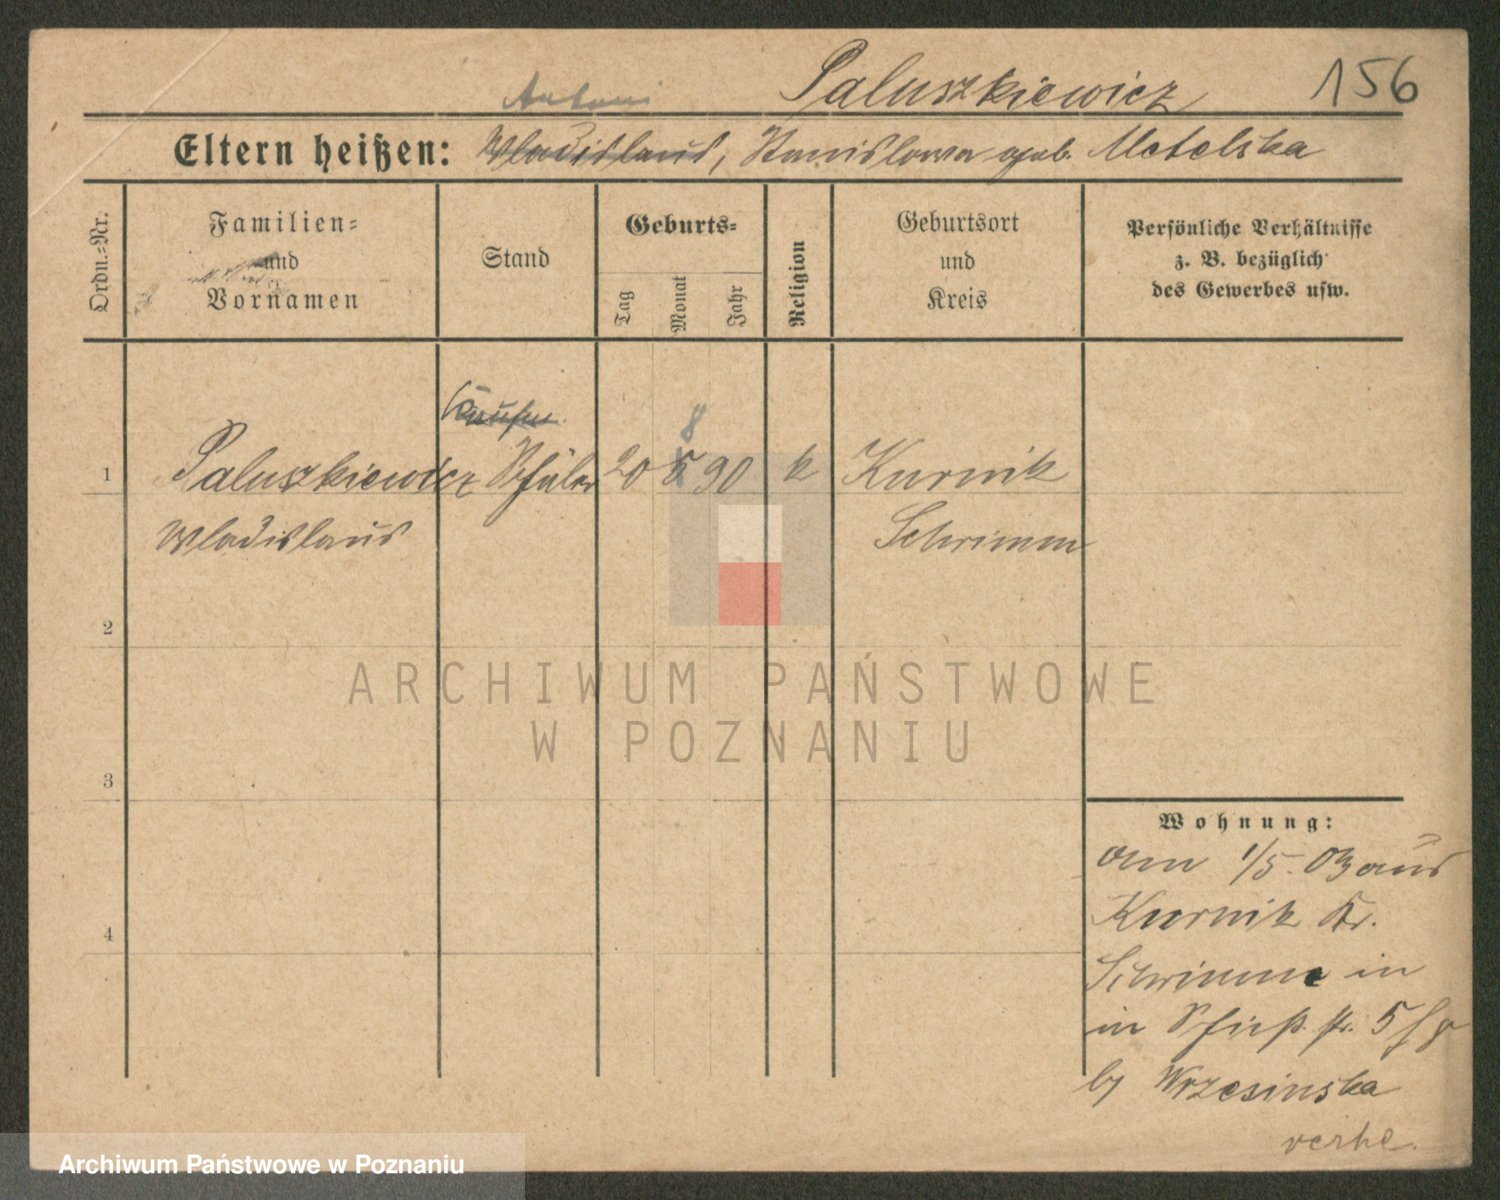 Paluszkiewicz 156
Antoni
Eltern heißen: Wladislaus, Stanislawa geb. Metelska
Ordn.-Nr.
Familien-
und
Vornamen
Stand
Geburts-
Tag
Monat
Jahr
Religion
Geburtsort
und
Kreis
Persönliche Verhältnisse
z. B. bezüglich
des Gewerbes usw.
8
1 Paluszkiewicz Schüler 20 90 k Kurnik
Wladislaus Schrimm
2
3
4
Wohnung:
am 1/5. 03 aus
Kurnik Kr.
Schrimm in
in Schieß str. 5
by Wrzesinska
ARCHIWUM PAŃSTWOWE
W POZNANIU
Archiwum Państwowe w Poznaniu